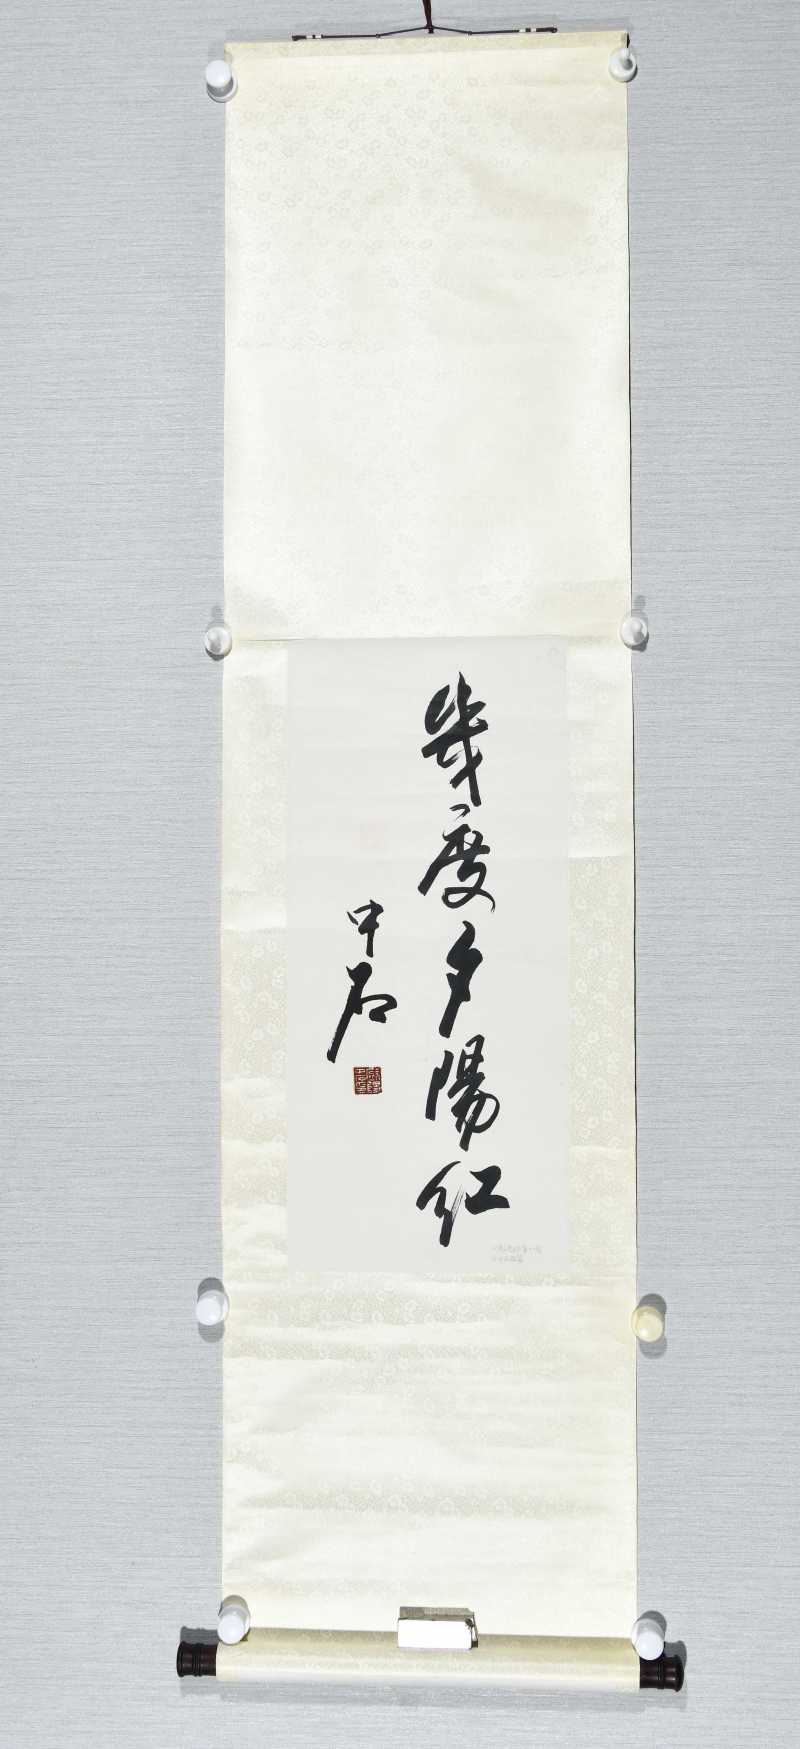 幾度夕陽红
中石